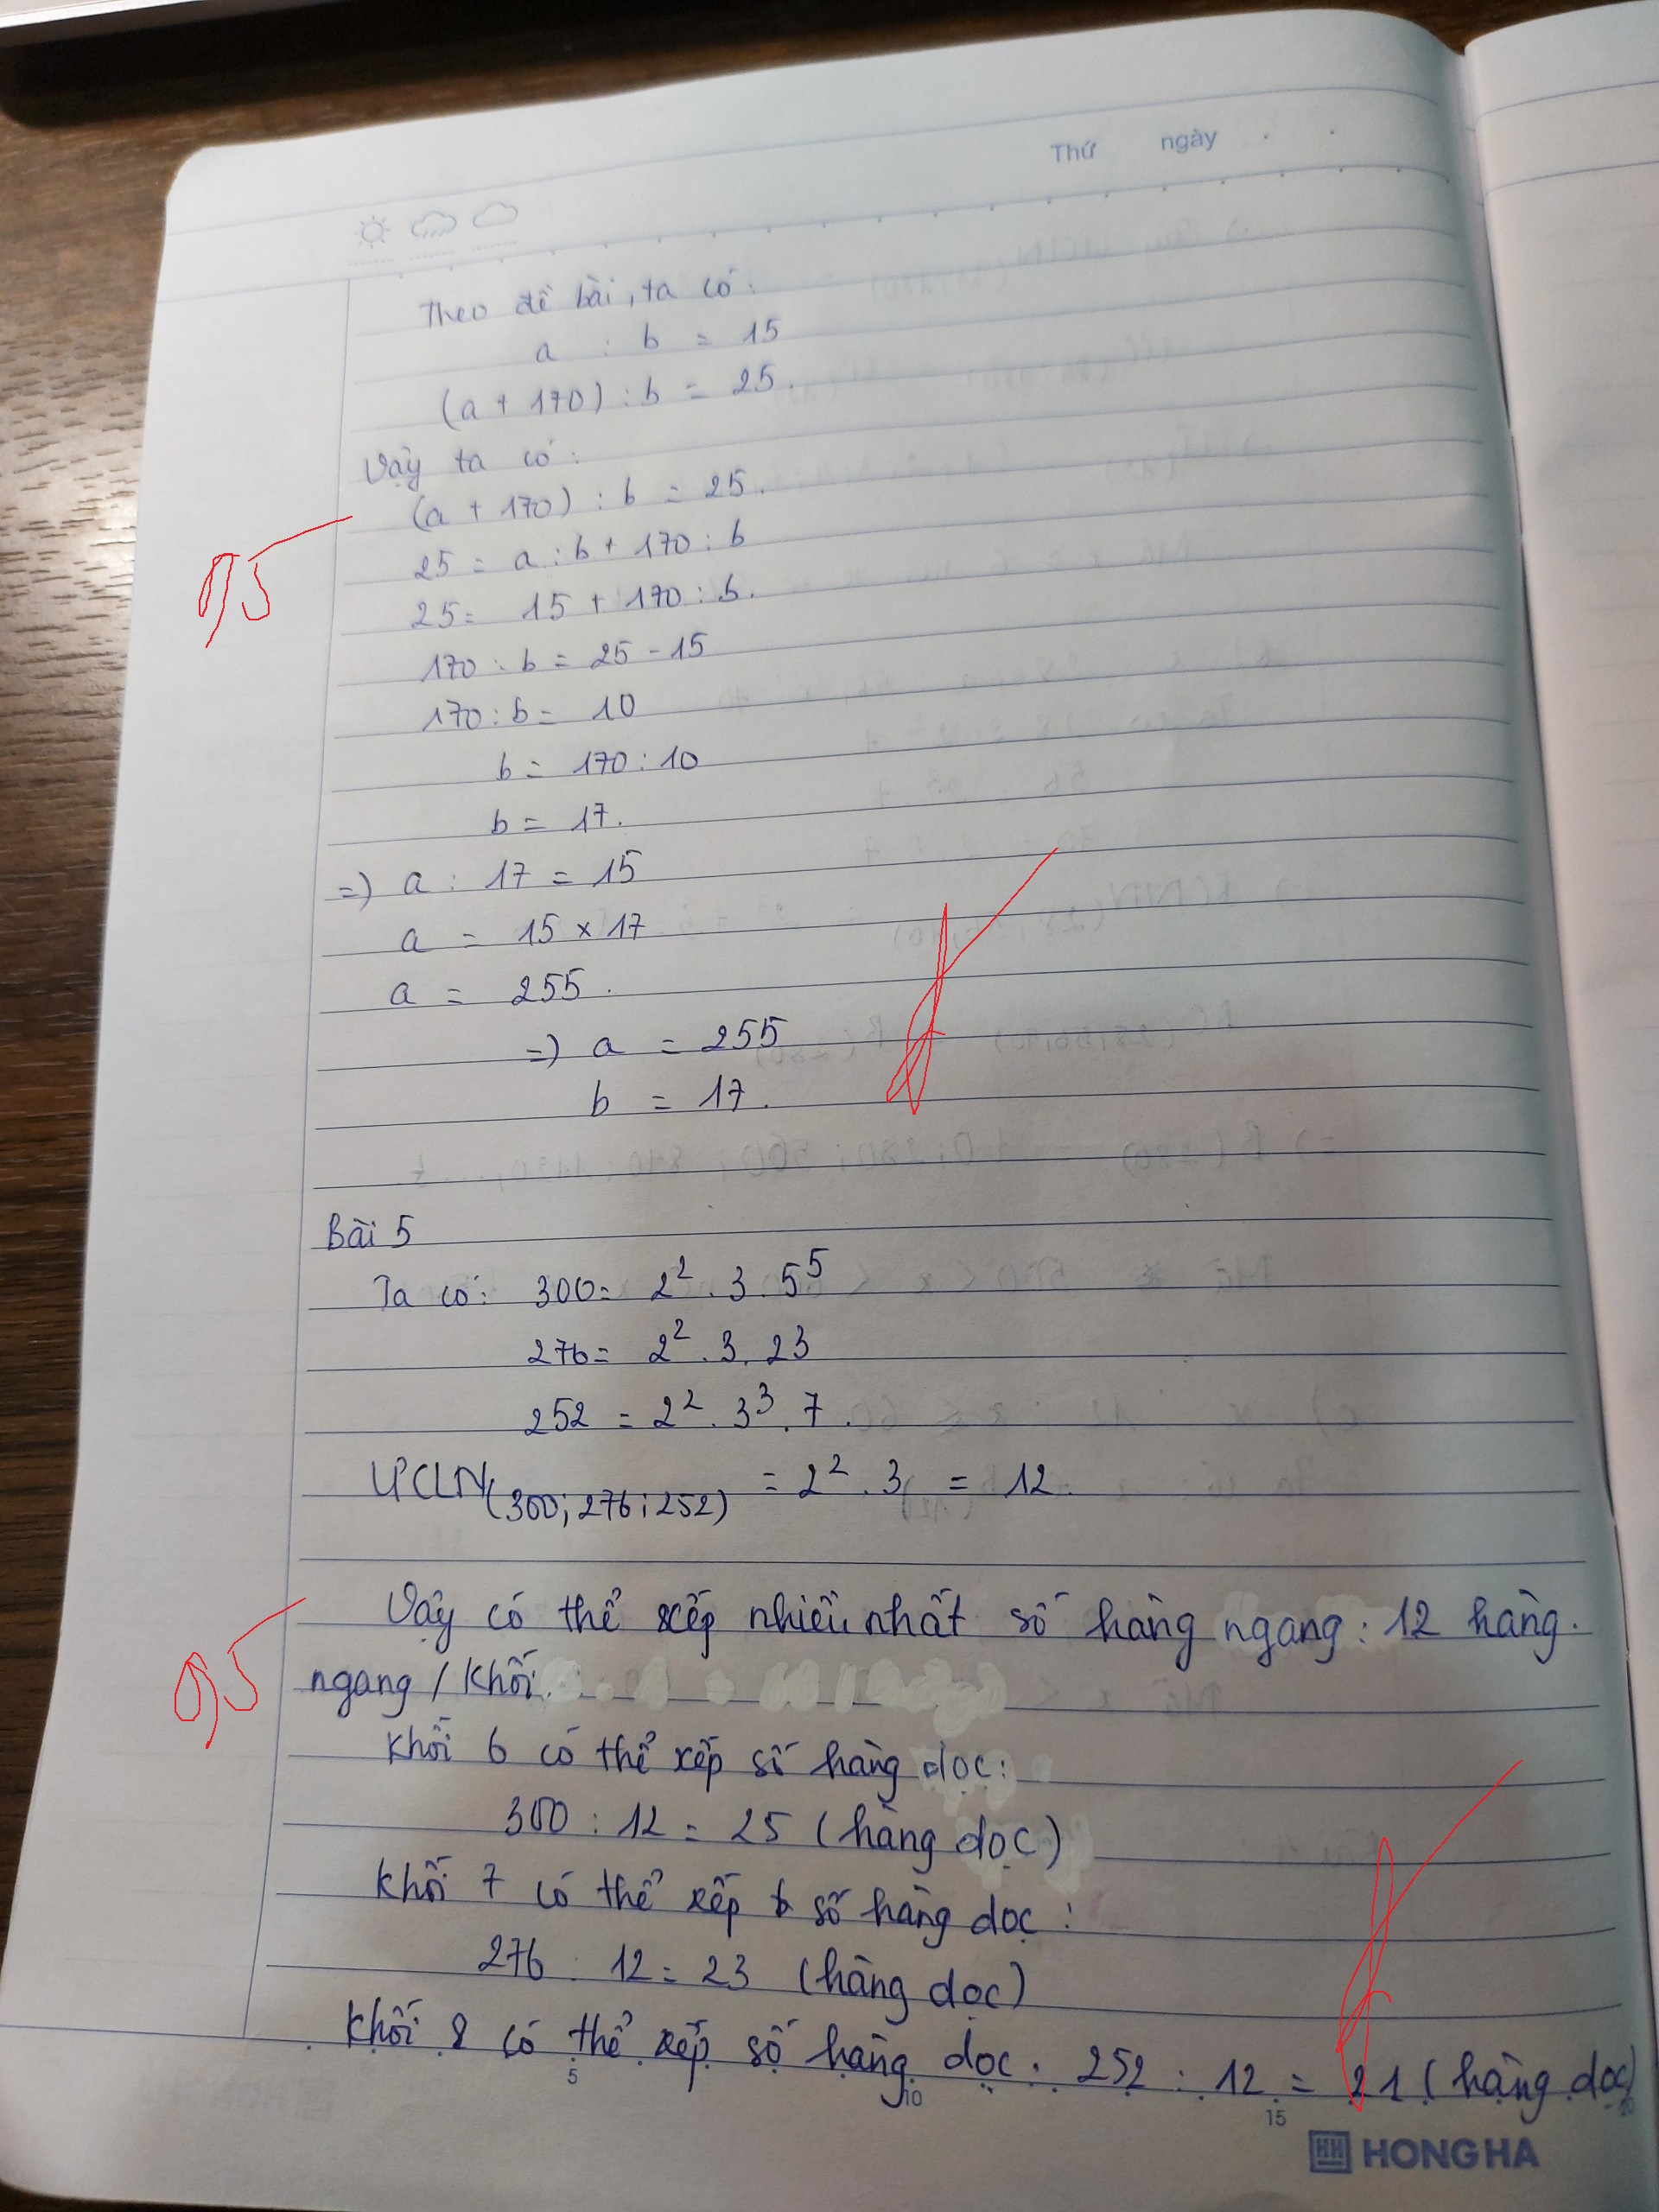 Thứ ngày
Theo đề bài, ta có:
a : b = 15
(a + 170) : b = 25.
Vậy ta có:
(a + 170) : b = 25.
25 = a : b + 170 : b
0,5
25 = 15 + 170 : b.
170 : b = 25 - 15
170 : b = 10
b = 170 : 10
b = 17.
=) a : 17 = 15
a = 15 x 17
a = 255.
=) a = 255
b = 17.
Bài 5
Ta có: 300 = 2². 3. 5⁵
276 = 2². 3. 23
252 = 2². 3³. 7.
ƯCLN(300; 276; 252) = 2². 3 = 12.
Vậy có thể xếp nhiều nhất số hàng ngang: 12 hàng.
0,5
ngang / khối.
Khối 6 có thể xếp số hàng dọc:
300 : 12 = 25 (hàng dọc)
Khối 7 có thể xếp số hàng dọc:
276 : 12 = 23 (hàng dọc)
Khối 8 có thể xếp số hàng dọc: 252 : 12 = 21 (hàng dọc)
5 10 15 20
HH HONG HA